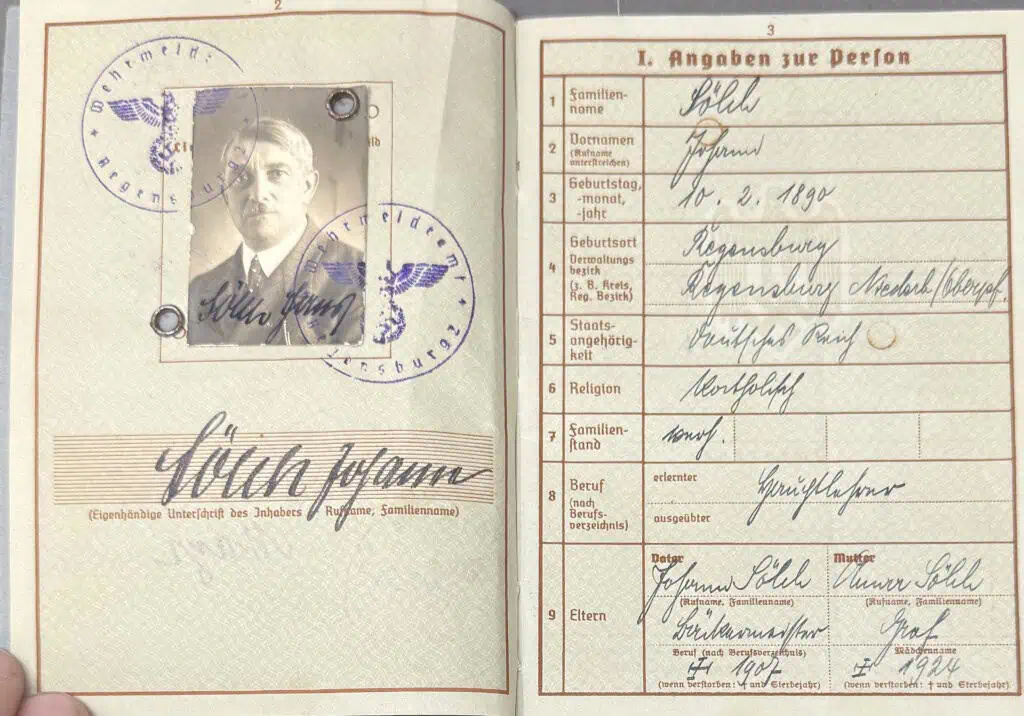 2
Wehrmeld
Regensburg
Wehrmeldeamt
Regensburg
Sölch Johann
(Eigenhändige Unterschrift des Inhabers Rufname, Familienname)
3
I. Angaben zur Person
1 Familien-
name Sölch
2 Vornamen
(Rufname
unterstreichen) Johann
3 Geburtstag,
-monat,
-jahr 10. 2. 1890
4 Geburtsort Regensburg
Verwaltungs
bezirk
(z. B. Kreis,
Reg. Bezirk) Regensburg Niederb/Oberpf.
5 Staats-
angehörig-
keit Deutsches Reich
6 Religion Katholisch
7 Familien-
stand verh.
8 Beruf
(nach
Berufs-
verzeichnis)
erlernter Hauptlehrer
ausgeübter
9 Eltern
Vater Mutter
Johann Sölch Anna Sölch
(Rufname, Familienname) (Rufname, Familienname)
Bäckermeister Graf
Beruf (nach Berufsverzeichnis) Mädchenname
† 1907 † 1924
(wenn verstorben: † und Sterbejahr) (wenn verstorben: † und Sterbejahr)